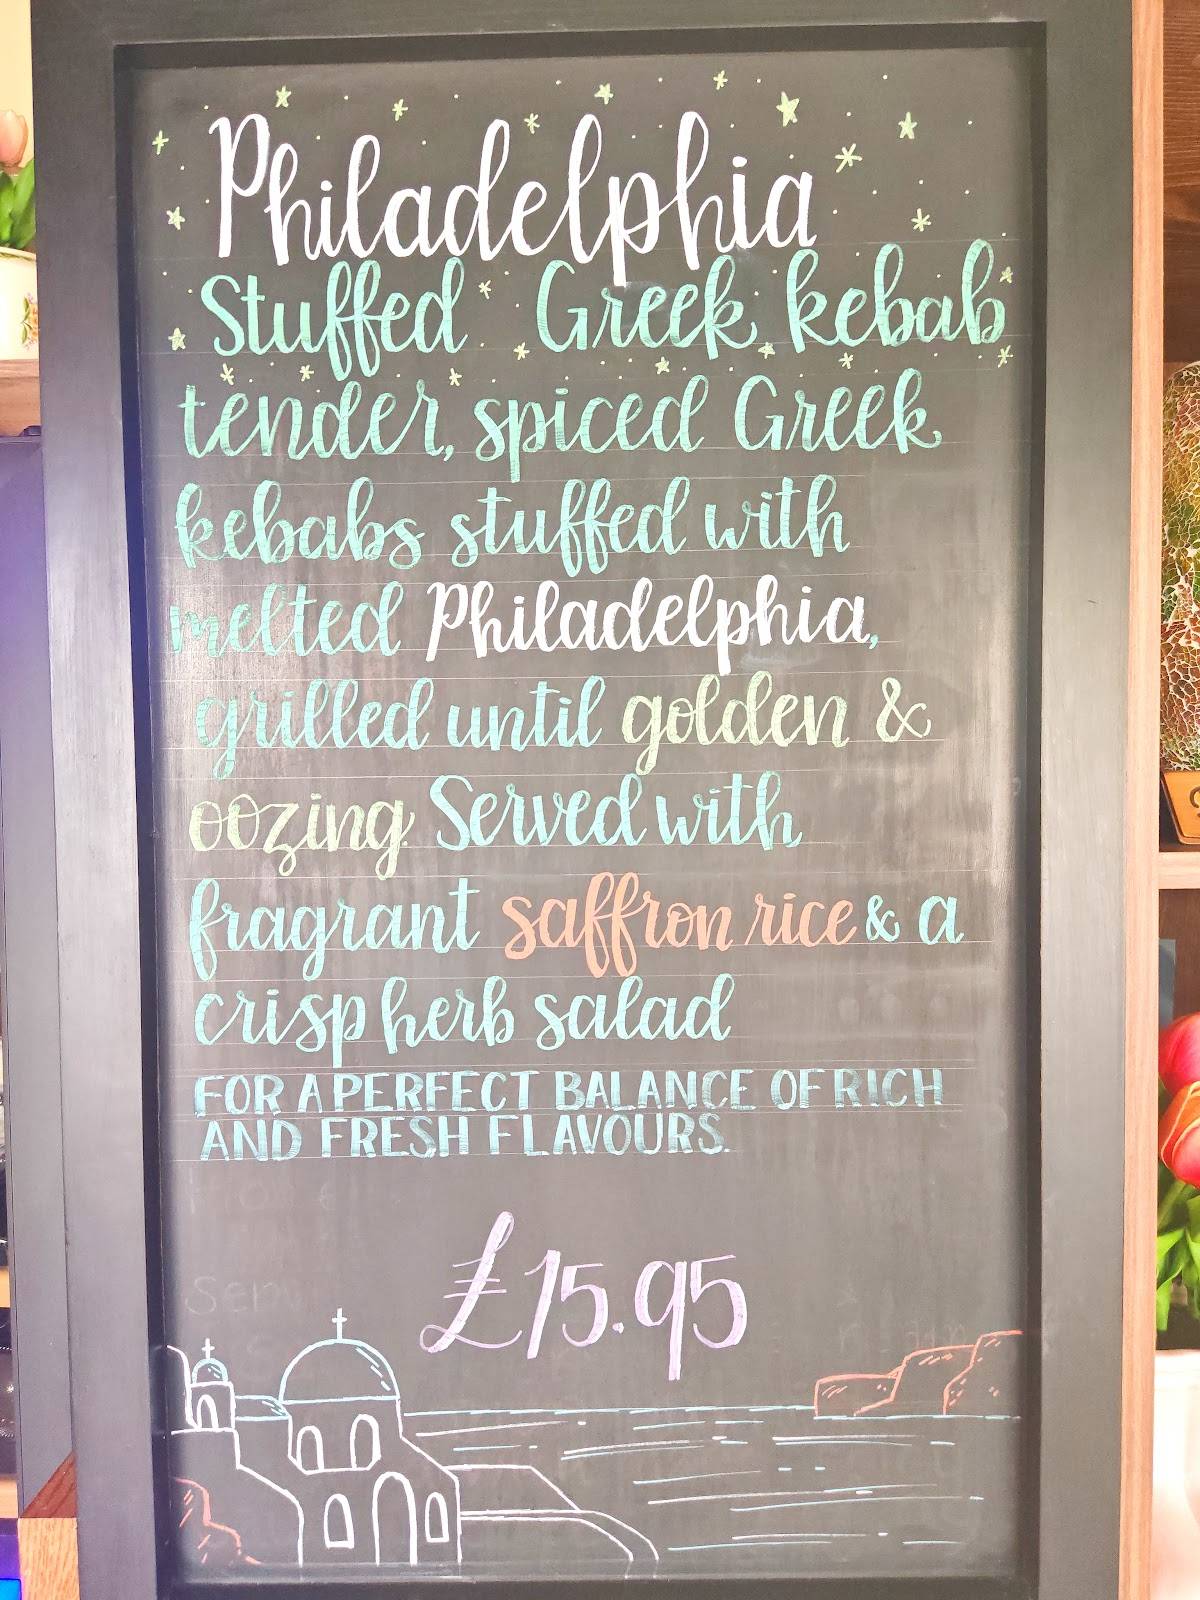 Philadelphia
Stuffed Greek kebab
tender, spiced Greek
kebabs stuffed with
melted Philadelphia,
grilled until golden &
oozing. Served with
fragrant saffron rice & a
crisp herb salad
FOR A PERFECT BALANCE OF RICH
AND FRESH FLAVOURS.
£15.95